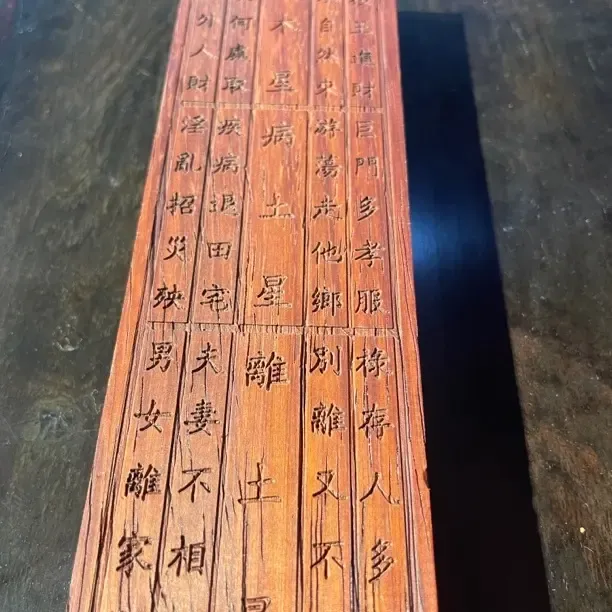 主進財
自然
木星
何處取
外人財
巨門多孝服
游蕩走他鄉
病土星
疾病退田宅
淫亂招災殃
祿存人多
別離又不
離土星
夫妻不相
男女離家